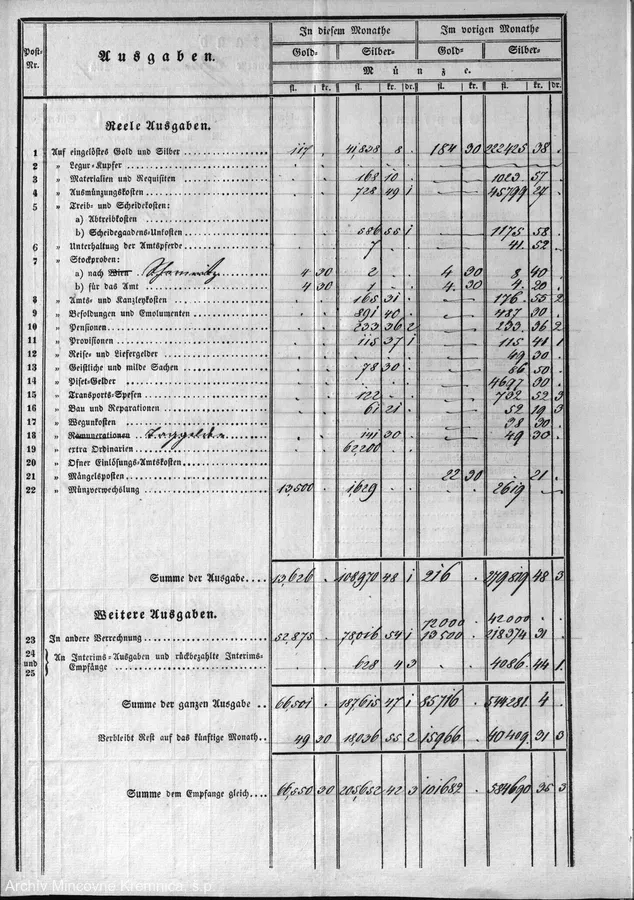 Post-Nr. Ausgaben. In diesem Monathe Im vorigen Monathe
Gold- Silber- Gold- Silber-
Münze.
fl. kr. fl. kr. dr. fl. kr. fl. kr. dr.
Reele Ausgaben.
1 Auf eingelöstes Gold und Silber 117 . 41,838 8 . 184 30 222425 38 .
2 „ Legur-Kupfer
3 „ Materialien und Requisiten 168 10 . 1023 57 .
4 „ Ausmünzungskosten 728 49 1 45799 27 .
5 „ Treib- und Scheidekosten:
a) Abtreibkosten
b) Scheidegadens-Unkosten 586 55 1 1175 58 .
6 „ Unterhaltung der Amtspferde 7 . 41 52 .
7 „ Stockproben:
a) nach Wien Schemnitz 4 30 2 . 4 30 8 40 .
b) für das Amt 4 30 1 . 4 30 4 20 .
8 „ Amts- und Kanzleykosten 165 31 . 176 55 2
9 „ Besoldungen und Emolumenten 891 40 . 487 30 .
10 „ Pensionen 233 36 2 233 36 2
11 „ Provisionen 115 37 1 115 41 1
12 „ Reise- und Liefergelder 49 30 .
13 „ Geistliche und milde Sachen 78 30 . 66 50 .
14 „ Piset-Gelder 4697 30 .
15 „ Transports-Spesen 122 . 792 52 3
16 „ Bau und Reparationen 61 21 . 52 19 3
17 „ Wegunkosten 38 30 .
18 „ Remunerationen Taggelder 141 30 . 49 30 .
19 „ extra Ordinarien 62,200
20 „ Ofner Einlösungs-Amtskosten
21 „ Mängelsposten 22 30 . 21 .
22 „ Münzverwechslung 13,500 . 1,629 . 2619
Summe der Ausgabe 13,626 . 108,970 48 1 216 . 279819 48 3
Weitere Ausgaben.
72000 . 42000 .
23 In andere Verrechnung 52,875 . 78,016 54 1 13500 . 218374 31 .
24 und 25 An Interims-Ausgaben und rückbezahlte Interims-
Empfänge 628 4 3 4086 44 1
Summe der ganzen Ausgabe 66,501 . 187,615 47 1 85716 . 544281 4 .
Verbleibt Rest auf das künftige Monath 49 30 18,036 55 2 15966 . 40409 31 3
Summe dem Empfange gleich 66,550 30 205,652 42 3 101682 . 584690 35 3
Archív Mincovne Kremnica, š.p.